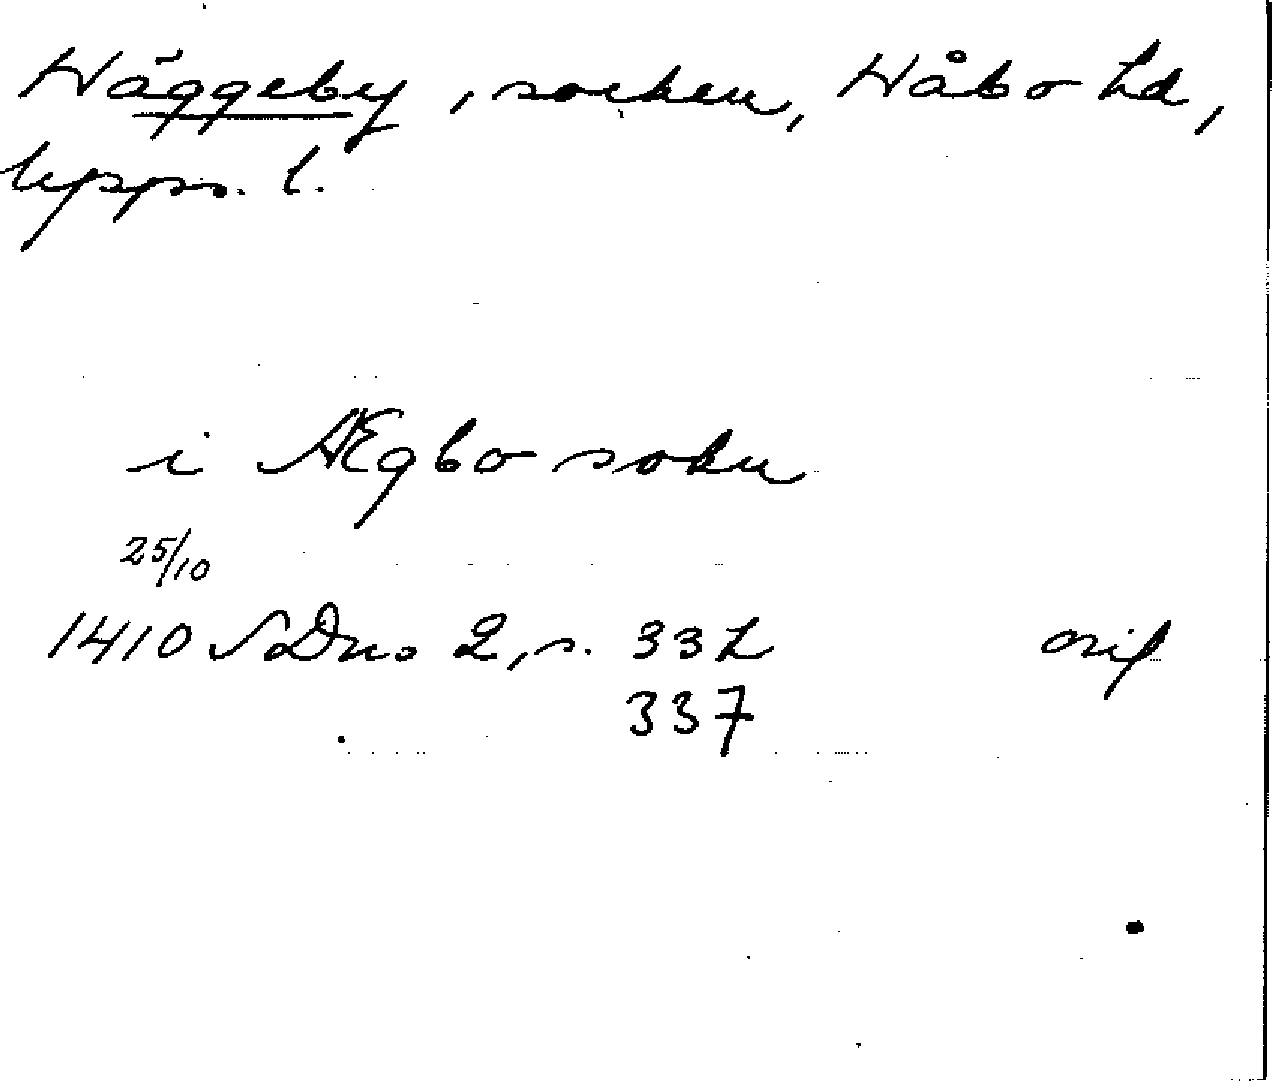 Häggeby, socken, Håbo hd,
Upps. l.
i Ægbo sokn
25/10
1410 SDns 2, s. 332
337
orig